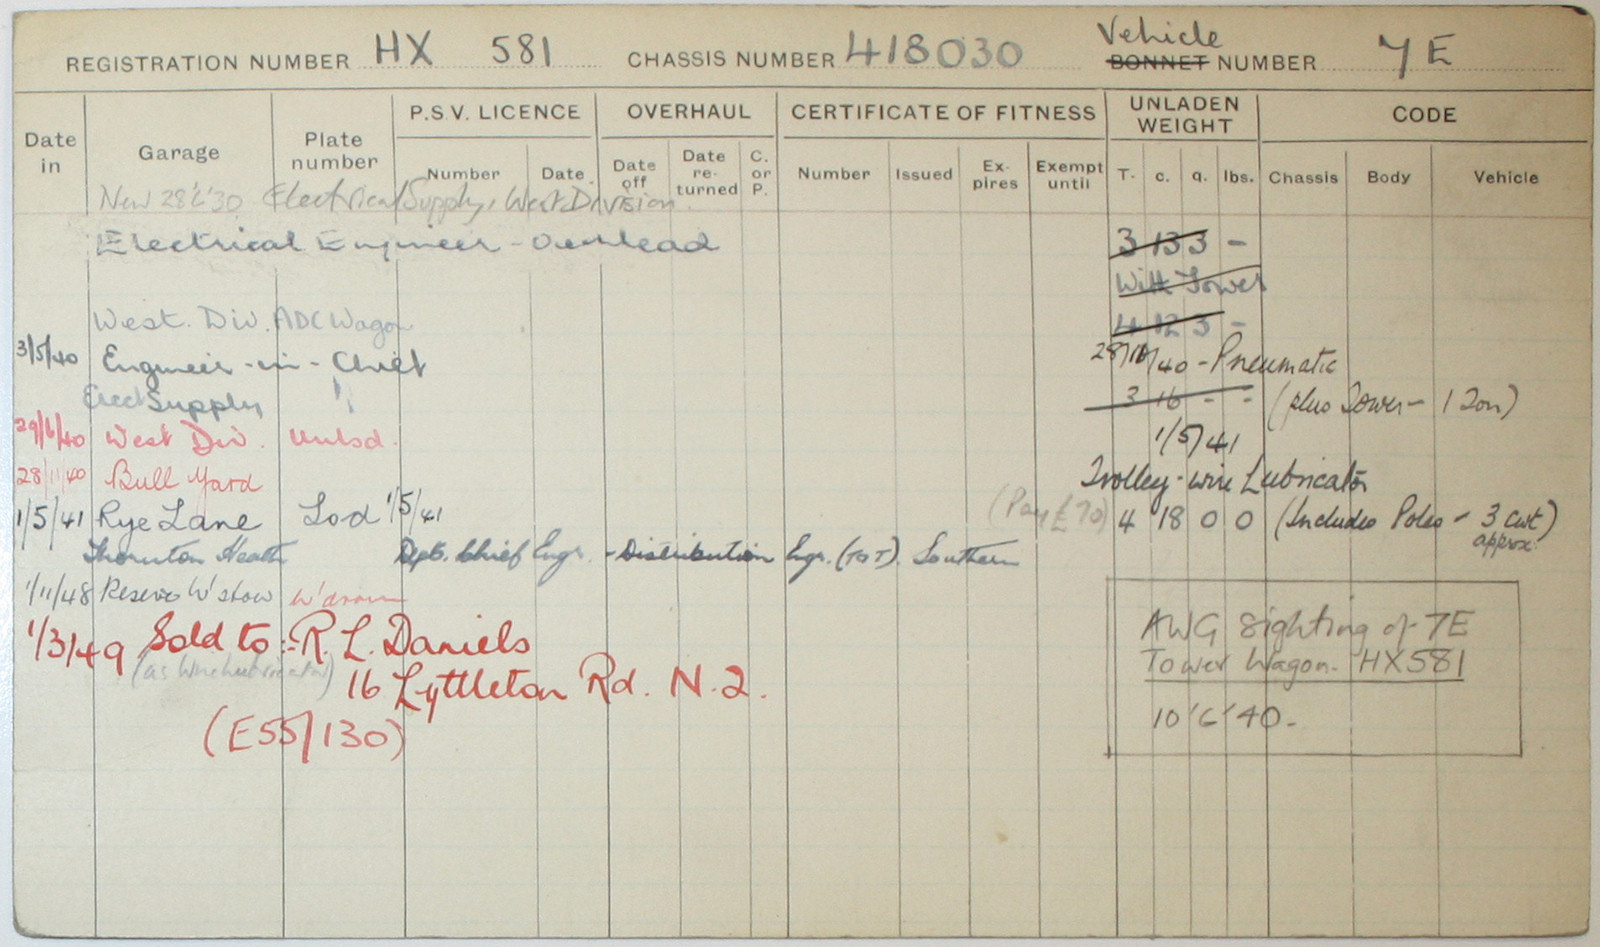 REGISTRATION NUMBER HX 581 CHASSIS NUMBER 418030 Vehicle BONNET NUMBER 7E
Date in Garage Plate number P.S.V. LICENCE OVERHAUL CERTIFICATE OF FITNESS UNLADEN WEIGHT CODE
Number Date Date off Date re-turned C. or P. Number Issued Ex-pires Exempt until T. c. q. lbs. Chassis Body Vehicle
New 28'6'30 Electrical Supply, West Division
Electrical Engineer - Overhead 3 13 3 -
With Tower
West. Div. ADC Wagon 4 12 3 -
3/5/40 Engineer-in-Chief 28/11/40 - Pneumatic
Elect Supply " 3 16 - - (plus Tower - 1 Ton)
29/6/40 West Div. Unlsd. 1/5/41
28/11/40 Bull Yard Trolley-wire Lubricator
1/5/41 Rye Lane Lsd 1/5/41 (Pay £70) 4 18 0 0 (Includes Poles - 3 cwt approx.)
Thornton Heath Dpt. Chief Engr. - Distribution Engr. (T or T). Southern
1/11/48 Reserve W'stow W'drawn
1/3/49 Sold to :- R. L. Daniels
(as wirelubricator) 16 Lyttleton Rd. N.2.
(E55/130)
AWG Sighting of 7E
Tower Wagon. HX581
10'6'40-